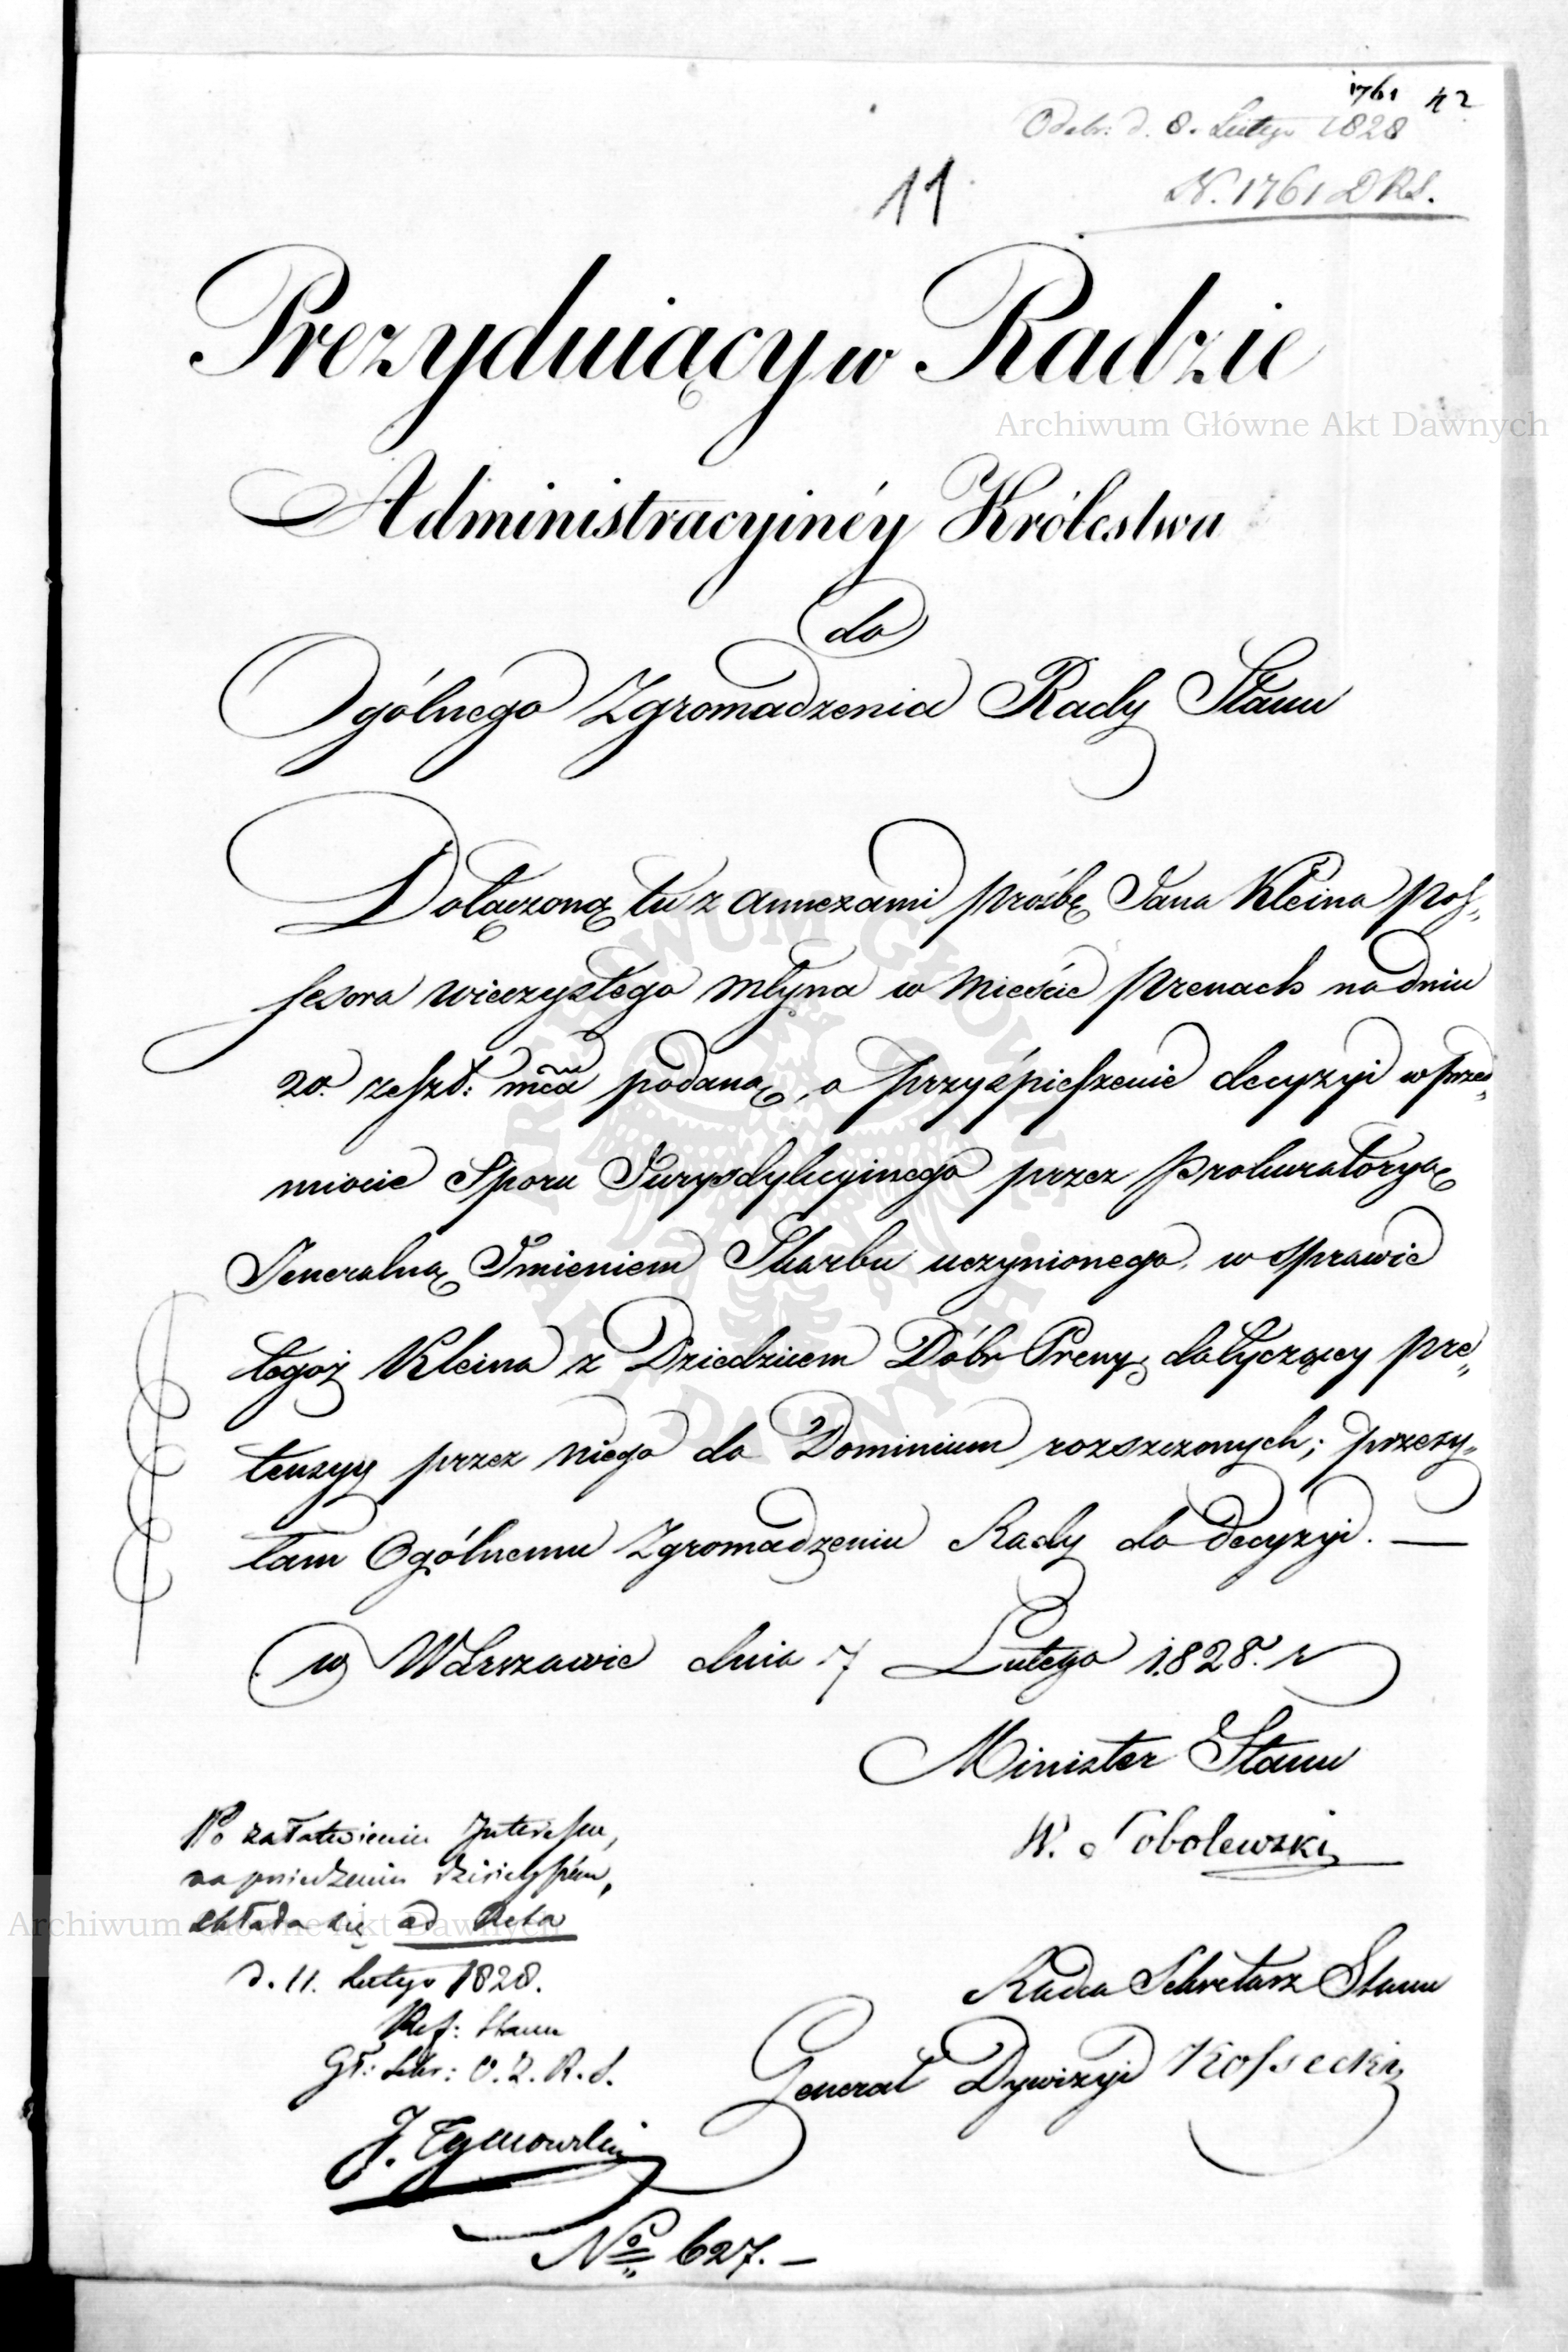 1761 42
Odebr: d. 8. Lutego 1828
N. 1761 DRS.
11
Prezyduiący w Radzie
Archiwum Główne Akt Dawnych
Administracyinéy Królestwa
do
Ogólnego Zgromadzenia Rady Stanu
Dołączoną tu z annexami prośbę Jana Kleina pos„
sesora wieczystego młyna w Mieście Prenach na dniu
20. zeszł: mca podaną, o przyśpieszenie decyzyi w przed„
miocie Sporu Jurysdykcyinego przez Prokuratoryą
Jeneralną Imieniem Skarbu uczynionego, w sprawie
tegoż Kleina z Dziedzicem Dóbr Preny, dotyczący pre„
tensyy przez niego do Dominium rozszczonych; przesy„
łam Ogólnemu Zgromadzeniu Rady do decyzyi. —
w Warszawie dnia 7 Lutego 1828. r
Minister Stanu
W. Sobolewski
Po załatwieniu Interessu,
na posiedzeniu dzisieyszém,
składa się ad Acta
Archiwum Główne Akt Dawnych
d. 11. Lutego 1828.
Ref: Stanu
Gł: Sekr: O. Z. R. S.
J. Tymowski
Radca Sekretarz Stanu
Generał Dywizyi Kossecki
No 627. —
ARCHIWUM GŁÓWNE AKT DAWNYCH